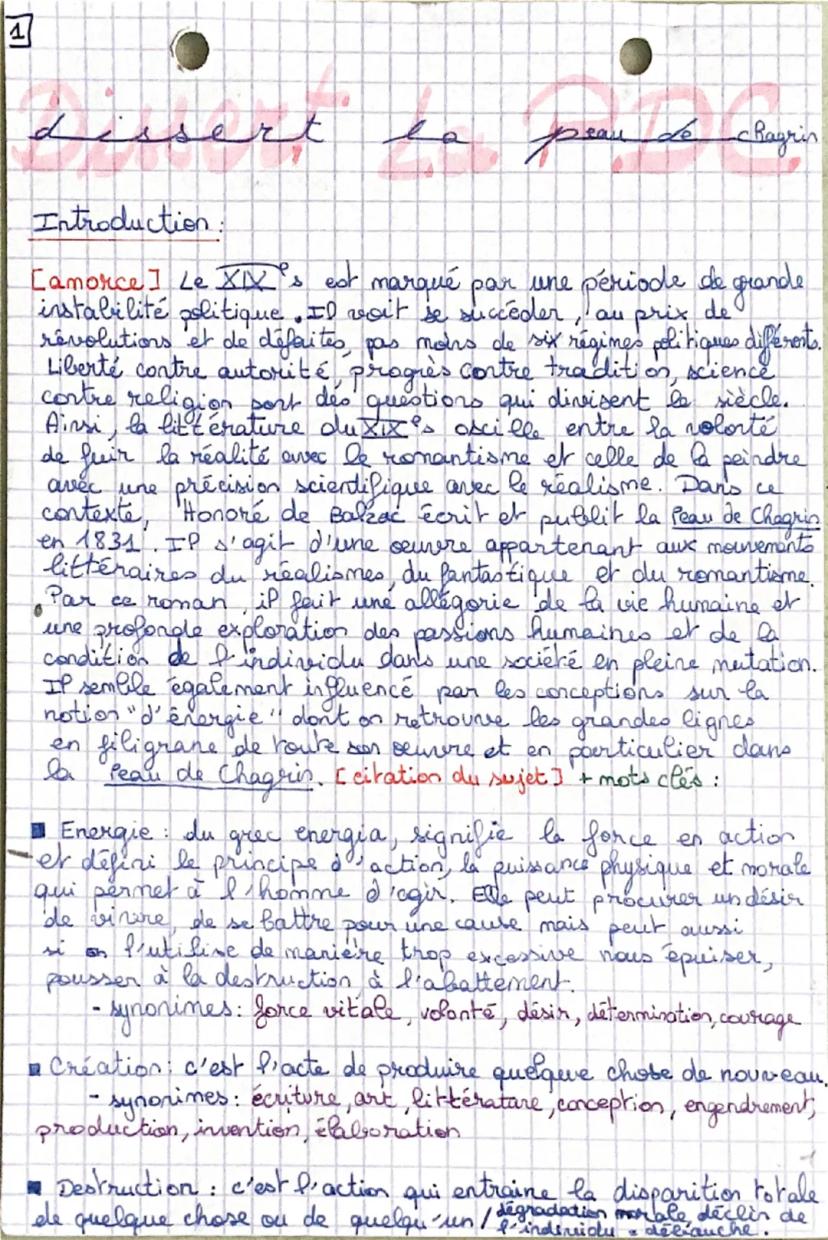 1
Dissert La PDC.
dissert la peau de chagrin
Introduction :
[amorce] Le XIXe s est marqué par une période de grande
instabilité politique. Il voit se succéder, au prix de
révolutions et de défaites, pas moins de six régimes politiques différents.
Liberté contre autorité, progrès contre tradition, science
contre religion sont des questions qui divisent le siècle.
Ainsi, la littérature du XIXe s oscille entre la volonté
de fuir la réalité avec le romantisme et celle de la peindre
avec une précision scientifique avec le réalisme. Dans ce
contexte, Honoré de Balzac écrit et publit la Peau de Chagrin
en 1831. Il s'agit d'une oeuvre appartenant aux mouvements
littéraires du réalismes, du fantastique et du romantisme.
Par ce roman, il fait une allégorie de la vie humaine et
une profonde exploration des passions humaines et de la
condition de l'individu dans une société en pleine mutation.
Il semble également influencé par les conceptions sur la
notion "d'énergie" dont on retrouve les grandes lignes
en filigrane de toute son oeuvre et en particulier dans
la Peau de Chagrin. [citation du sujet] + mots clés :
■ Energie : du grec energia, signifie la force en action
et défini le principe d'action, la puissance physique et morale
qui permet à l'homme d'agir. Elle peut procurer un désir
de vivre, de se battre pour une cause mais peut aussi
si on l'utilise de manière trop excessive nous épuiser,
pousser à la destruction à l'abattement.
- synonimes : force vitale, volonté, désir, détermination, courage
■ Création : c'est l'acte de produire quelque chose de nouveau.
- synonimes : écriture, art, littérature, conception, engendrement,
production, invention, élaboration
■ Destruction : c'est l'action qui entraine la disparition totale
de quelque chose ou de quelqu'un / dégradation morale déclin de
l'individu = débauche.